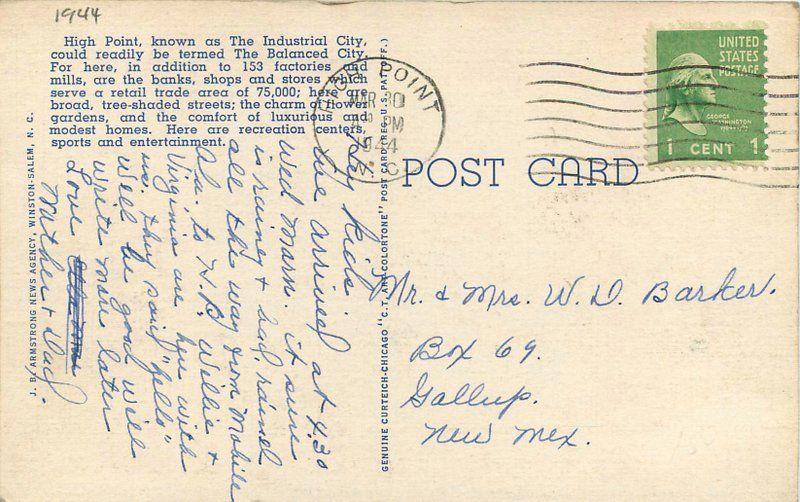 1944
High Point, known as The Industrial City,
could readily be termed The Balanced City.
For here, in addition to 153 factories and
mills, are the banks, shops and stores which
serve a retail trade area of 75,000; here are
broad, tree-shaded streets; the charm of flower
gardens, and the comfort of luxurious and
modest homes. Here are recreation centers,
sports and entertainment.
J. B. ARMSTRONG NEWS AGENCY, WINSTON-SALEM, N. C.
Hey Kids
we arrived at 4:30
Wed Morn. it sure
is rainey & had rained
all the way from Mobile
Ala. to H.P. Willie &
Virginia are here with
us. they said "hello"
will be good will
write more later
Love
Mother & Dad.
GENUINE CURTEICH-CHICAGO "C.T. ART-COLORTONE" POST CARD (REG. U.S. PAT. OFF.)
HIGH POINT
MAR 30
PM
1944
N. C.
UNITED
STATES
POSTAGE
GEORGE
WASHINGTON
1 CENT 1
POST CARD
Mr. & Mrs. W. D. Barker.
Box 69.
Gallup.
New Mex.